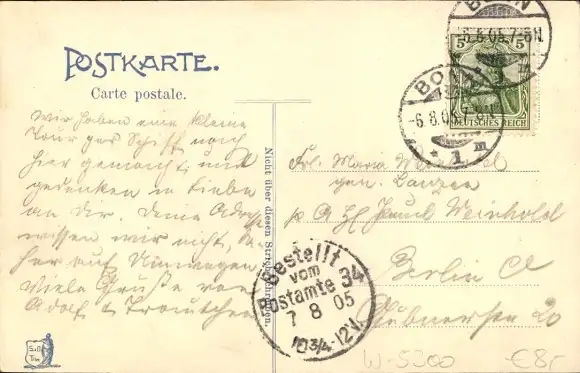 POSTKARTE.
Carte postale.
Wir haben eine kleine
Tour per Schiff nach
hier gemacht und
gedenken in Liebe
an Dir. Deine Adresse
wissen wir nicht, da-
her auf Umwegen.
Viele Grüße von
Adolf & Trautchen
Nicht über diesen Strich schreiben.
BONN
-6.8.05.7-8N.
5 5
DEUTSCHES REICH
BONN
-6.8.05.7-8N.
* 1 m
Frl. Maria
gen.
p A Paul Weinhold
Berlin
20
Bestellt
vom
Postamte 34
7 8 05
103/4-12V.
W-5300 €8,-